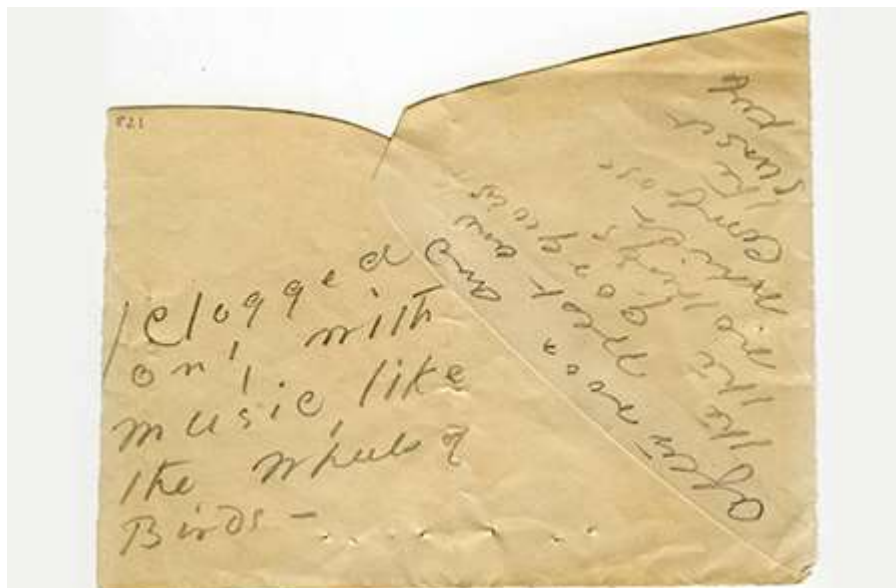 821
Clogged
only with
music, like
the Wheels of
Birds -
Afternoon and
the West and
the gorgeous
nothings
which
compose
the
sunset
keep